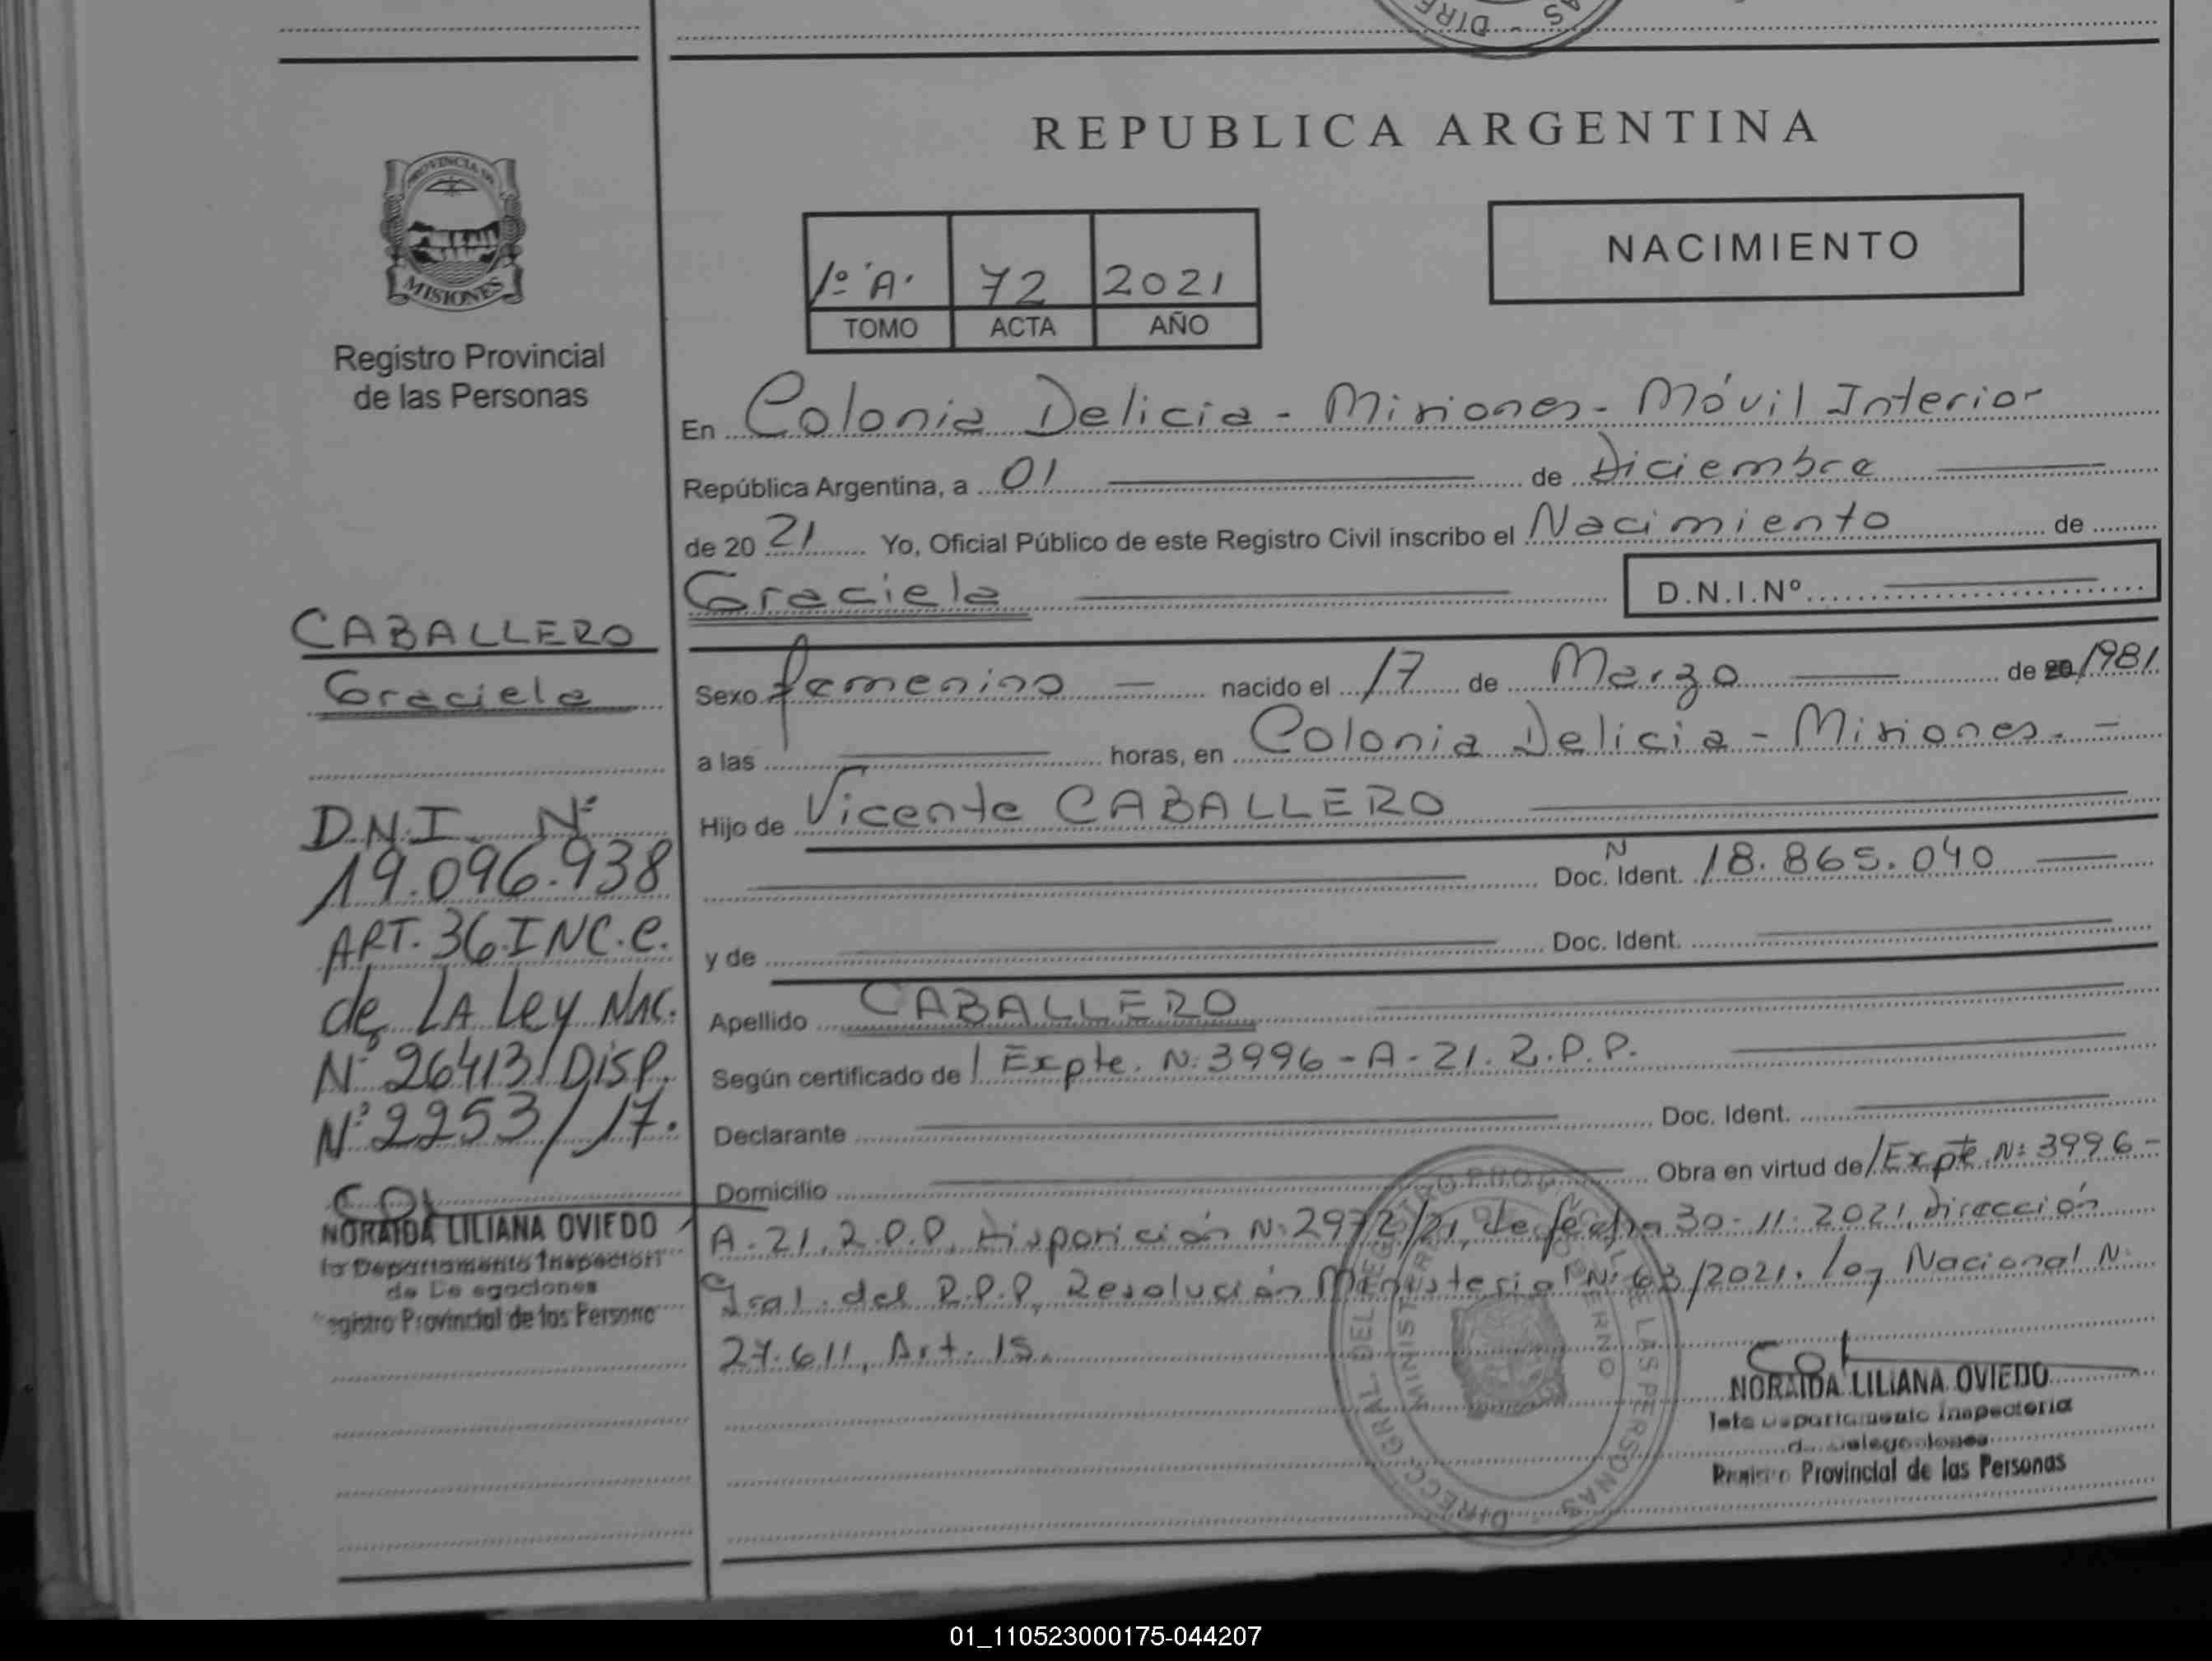 REPUBLICA ARGENTINA
PROVINCIA DE
MISIONES
Registro Provincial
de las Personas
NACIMIENTO
1º "A" 72 2021
TOMO ACTA AÑO
En Colonia Delicia - Misiones - Móvil Interior
República Argentina, a 01 de Diciembre
de 20 21 Yo, Oficial Público de este Registro Civil inscribo el Nacimiento de
Graciela D.N.I.Nº
Sexo femenino — nacido el 17 de Marzo de 20 1981
a las horas, en Colonia Delicia - Misiones. -
Hijo de Vicente CABALLERO
Doc. Ident. Nº 18.865.040
y de Doc. Ident.
Apellido CABALLERO
Según certificado de / Expte. Nº 3996 - A - 21. R.P.P.
Declarante Doc. Ident.
Domicilio Obra en virtud de / Expte Nº 3996 -
A - 21. R.P.P, Disposición Nº 2972/21, de fecha 30-11-2021, Dirección
Gral. del R.P.P, Resolución Ministerial Nº 63/2021. Ley Nacional Nº
27.611, Art. 15.
NORAIDA LILIANA OVIEDO
Jefe Departamento Inspectoria
de Delegaciones
Registro Provincial de las Personas
CABALLERO
Graciela
D.N.I. Nº
19.096.938
ART. 36 INC. e.
de LA Ley NAC.
Nº 26413/DISP.
Nº 2253/17.
NORAIDA LILIANA OVIEDO
Departamento Inspeccion
de Delegaciones
Registro Provincial de las Persona
DIRECC. GRAL. DEL REGISTRO PROVINCIAL DE LAS PERSONAS
MINISTERIO DE GOBIERNO
01_110523000175-044207